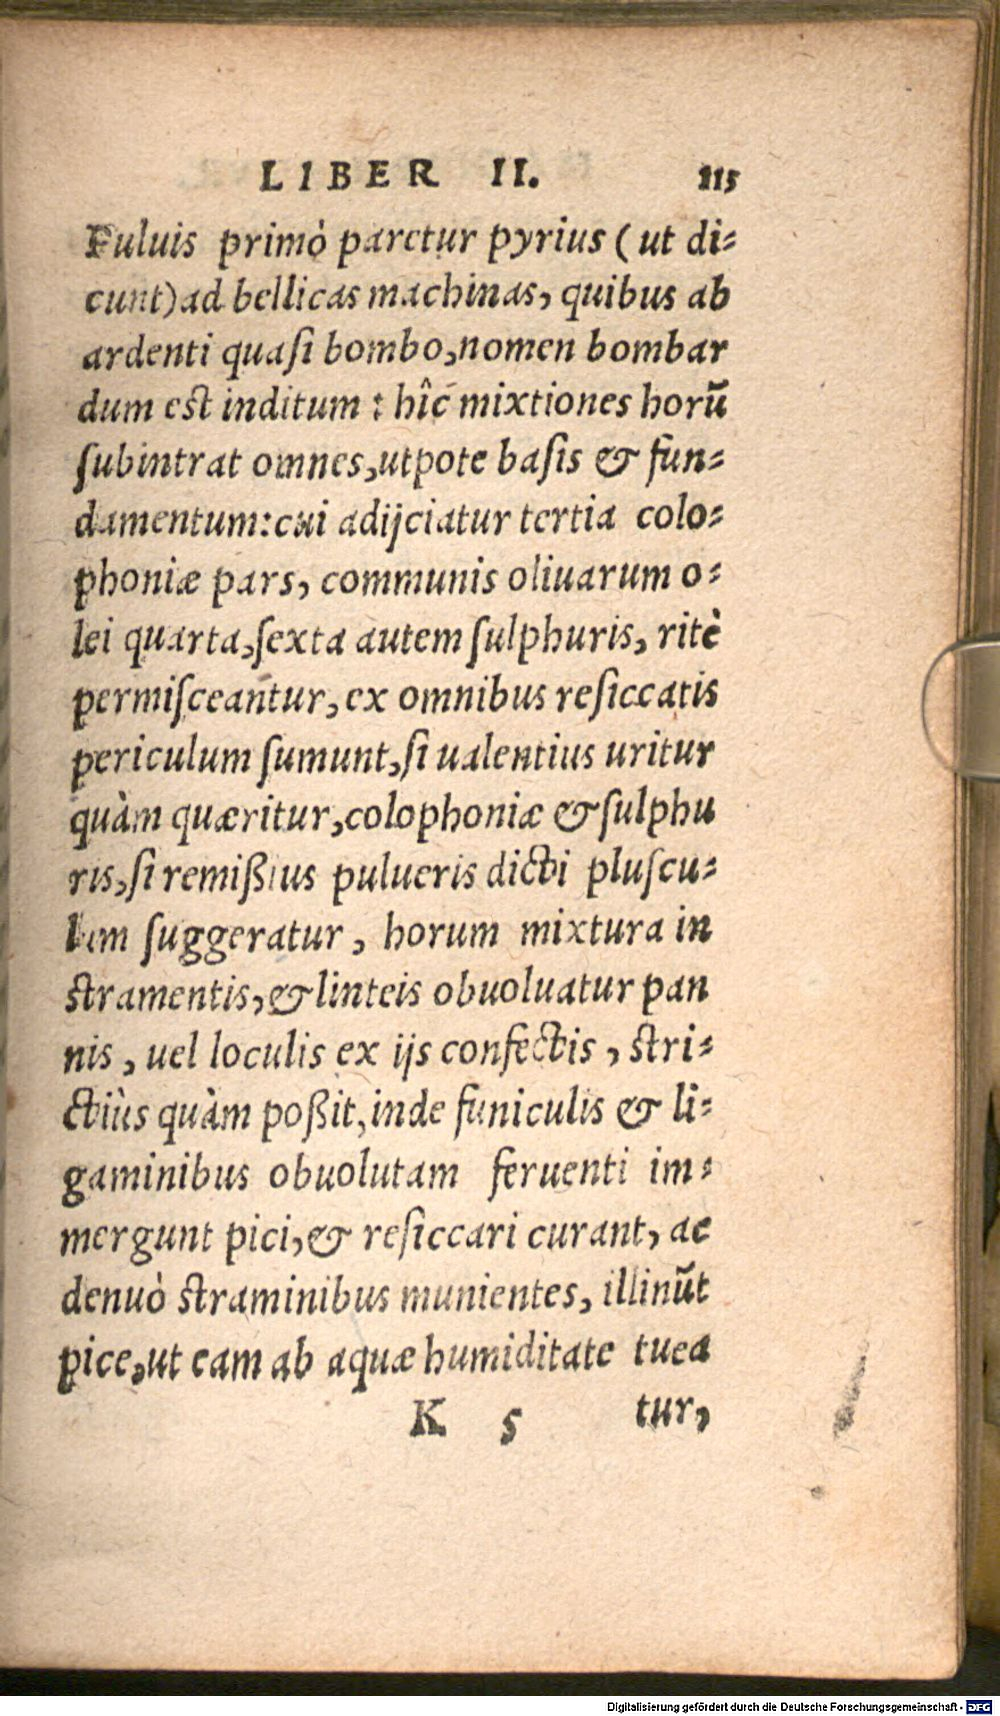 LIBER II. 115
Puluis primò paretur pyrius (ut di-
cunt) ad bellicas machinas, quibus ab
ardenti quasi bombo, nomen bombar
dum est inditum: hîc mixtiones horũ
subintrat omnes, utpote basis & fun-
damentum: cui adijciatur tertia colo-
phoniæ pars, communis oliuarum o-
lei quarta, sexta autem sulphuris, ritè
permisceantur, ex omnibus resiccatis
periculum sumunt, si ualentius uritur
quàm quæritur, colophoniæ & sulphu
ris, si remißius pulueris dicti pluscu-
lum suggeratur, horum mixtura in
stramentis, & linteis obuoluatur pan
nis, uel loculis ex ijs confectis, stri-
ctiùs quàm poßit, inde funiculis & li-
gaminibus obuolutam feruenti im-
mergunt pici, & resiccari curant, ac
denuò straminibus munientes, illinũt
pice, ut eam ab aquæ humiditate tuea
K 5 tur,
Digitalisierung gefördert durch die Deutsche Forschungsgemeinschaft - DFG